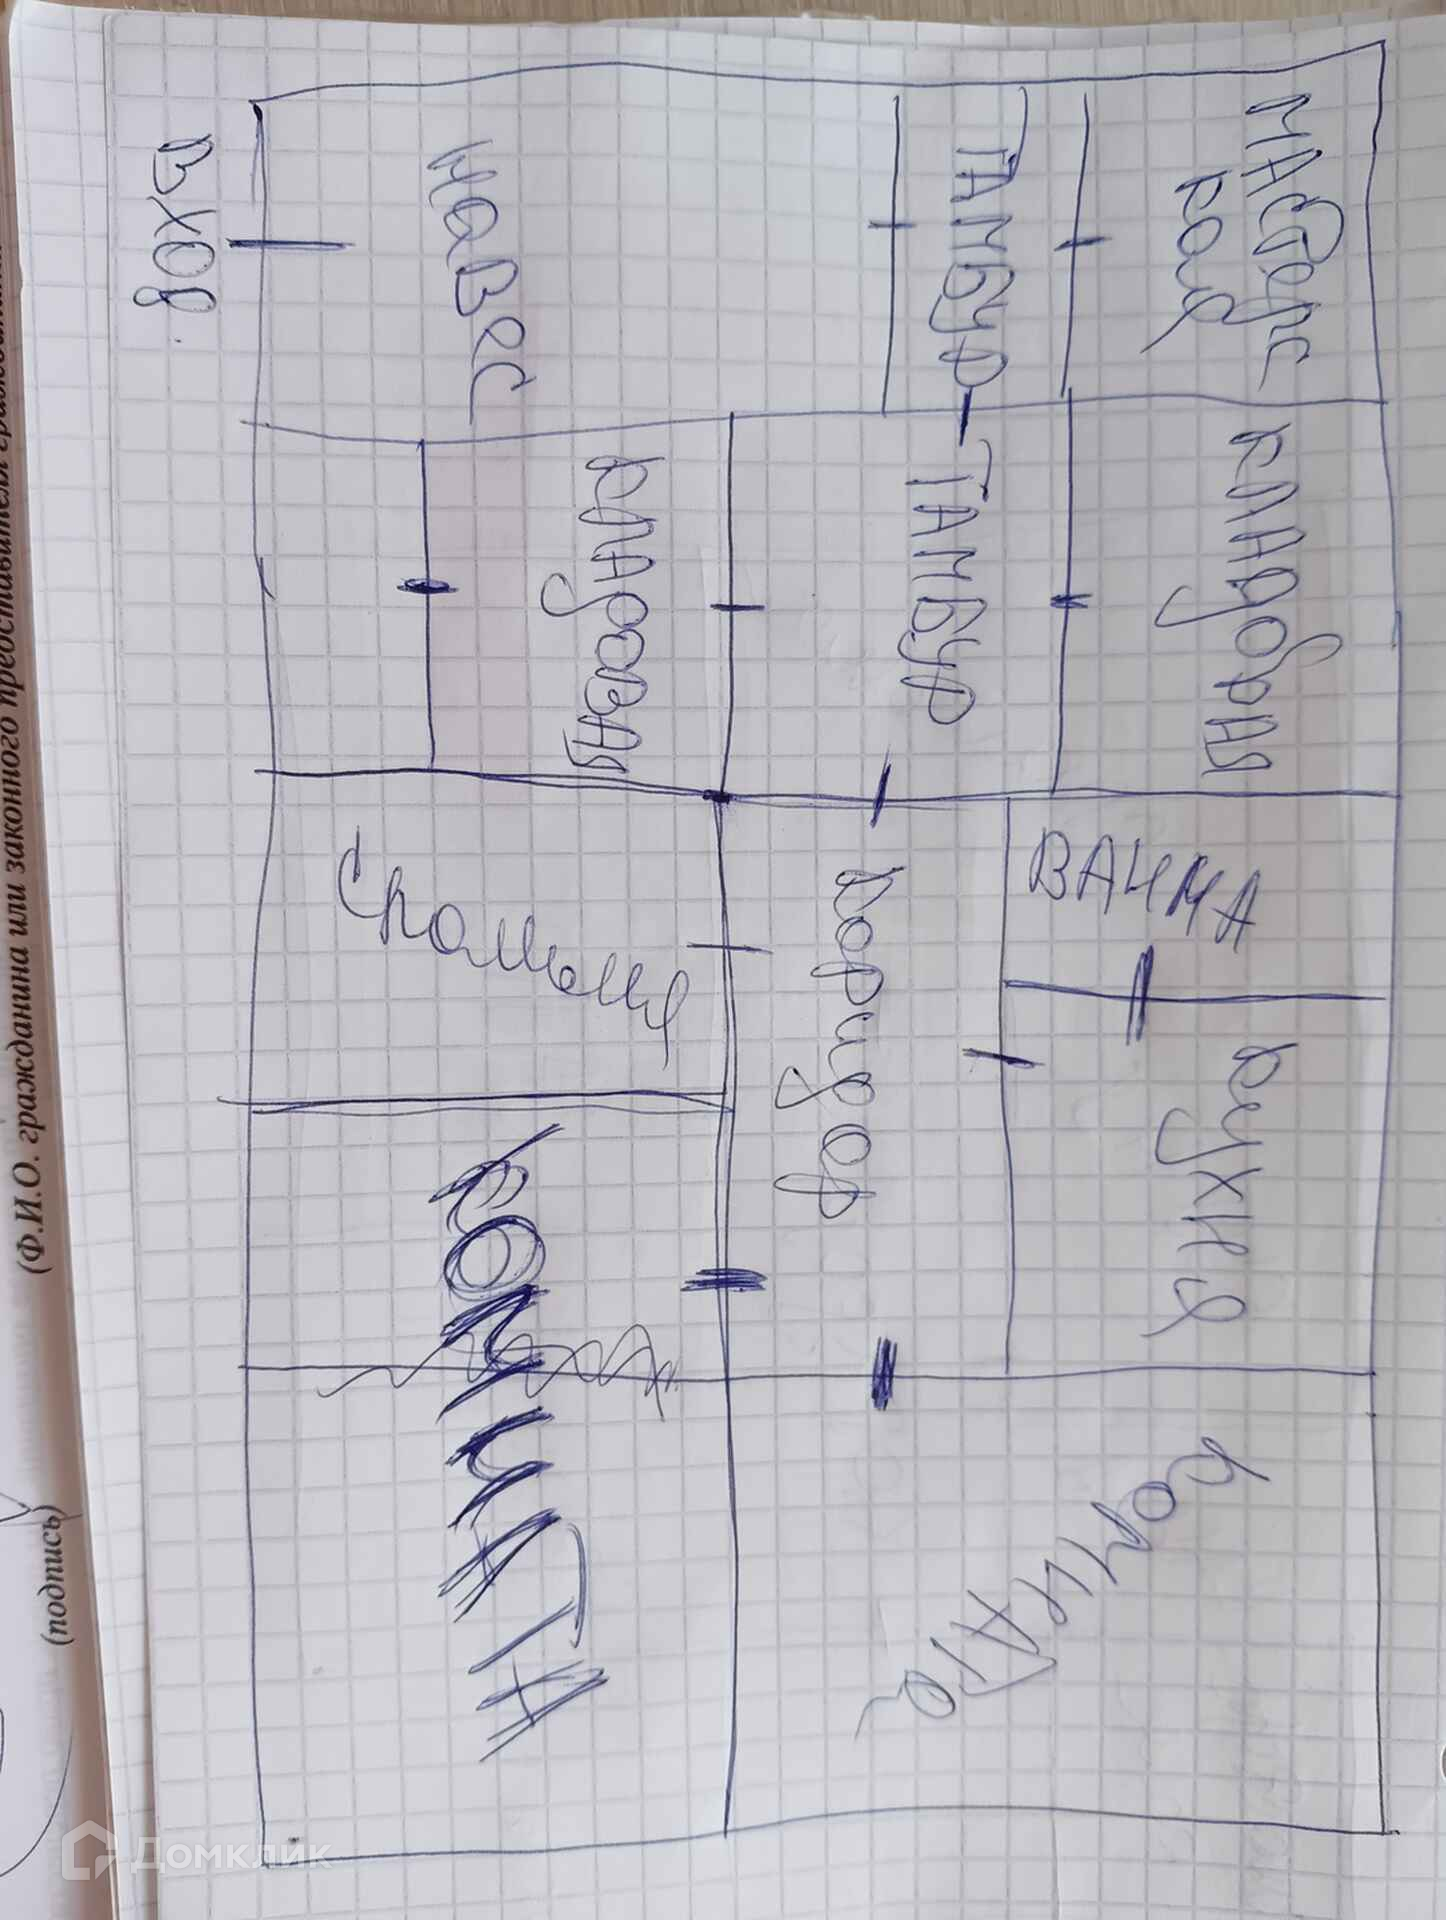 МАСТЕРС
КАЯ
КЛАДОВАЯ
ВАННА
КУХНЯ
Комната
ТАМБУР
ТАМБУР
Коридор
Навес
КЛАДОВАЯ
Спальня
КОМНАТА
Вход.
(Ф.И.О. гражданина или законного представителя гражданина
(подпись)
Домклик